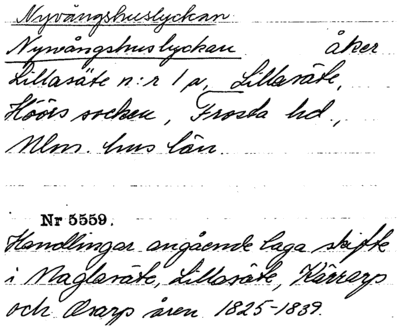 Nyvångshuslyckan
Nyvångshuslyckan åker
Lillasäte n:r 1 a, Lillasäte,
Höörs socken, Frosta hd.,
Mlm. hus län.
Nr 5559.
Handlingar angående laga skifte
i Maglasäte, Lillasäte, Kärrarp
och Orarp åren 1825-1839.